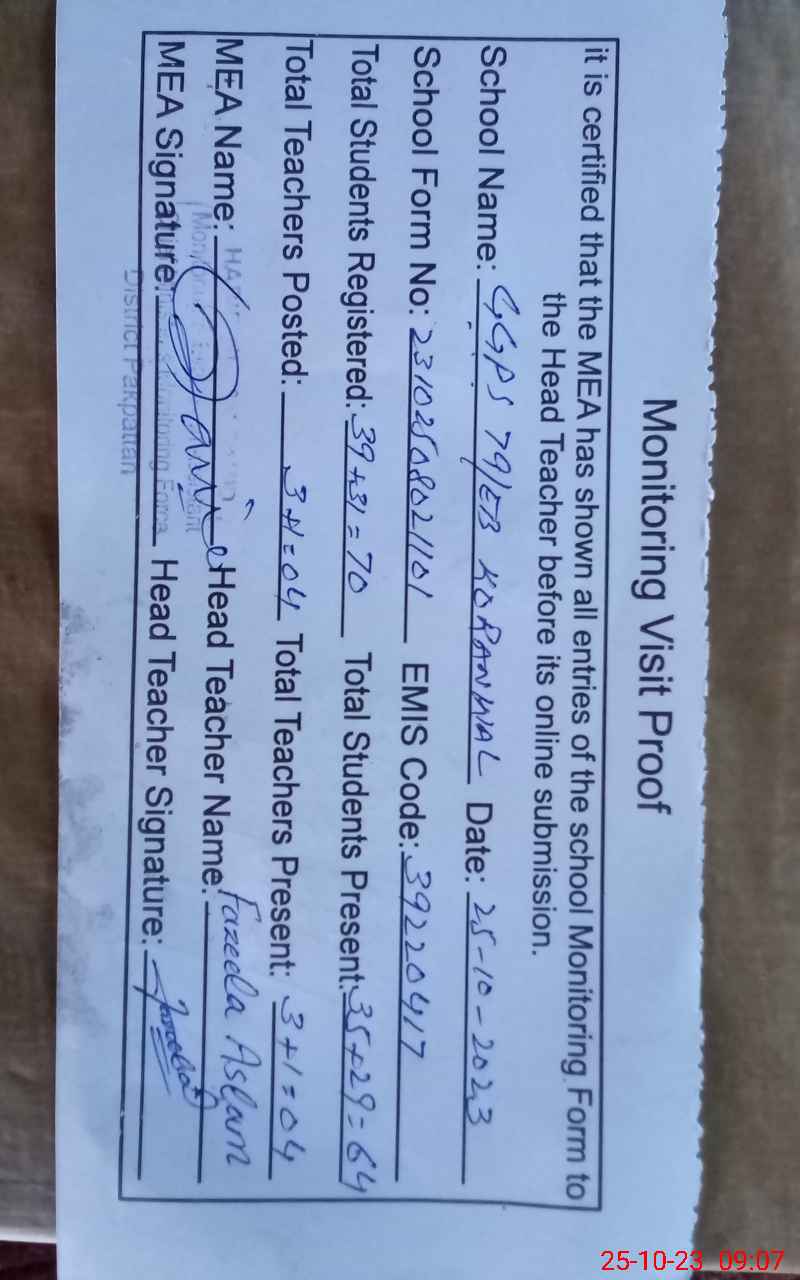 Monitoring Visit Proof
it is certified that the MEA has shown all entries of the school Monitoring Form to
the Head Teacher before its online submission.
School Name: GGPS 79/EB KORANWAL Date: 25-10-2023
School Form No: 23102508021101 EMIS Code: 39220417
Total Students Registered: 39+31=70 Total Students Present: 35+29=64
Total Teachers Posted: 3+1=04 Total Teachers Present: 3+1=04
MEA Name: Head Teacher Name: Fazeela Aslam
MEA Signature: Head Teacher Signature: Fazeela
Monitoring Force
District Pakpattan
25-10-23 09:07